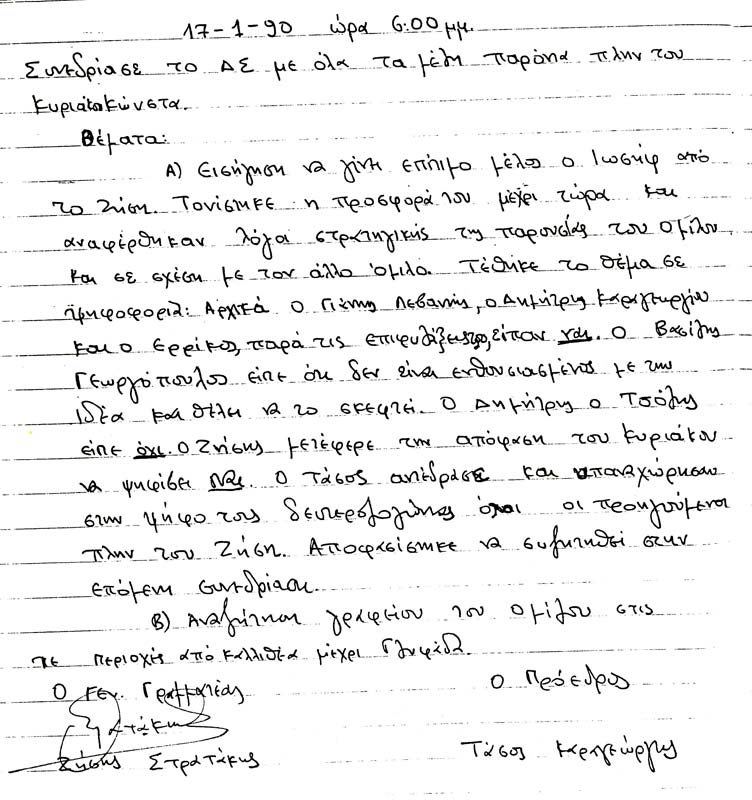 17-1-90 ώρα 6:00 μμ.
Συνεδρίασε το ΔΣ με όλα τα μέλη παρόντα πλην του
Κυριάκο Κώνστα.
Θέματα:
Α) Εισήγηση να γίνει επίτιμο μέλος ο Ιωσήφ από
το Ζήση. Τονίστηκε η προσφορά του μέχρι τώρα και
αναφέρθηκαν λόγοι στρατηγικής της παρουσίας του Ομίλου
και σε σχέση με τον άλλο όμιλο. Τέθηκε το θέμα σε
ψηφοφορία: Αρχικά ο Γιάννης Λεβαντής, ο Δημήτρης Καραγεωργίου
και ο Ερρίκος, παρά τις επιφυλάξεις του, είπαν ναι. Ο Βασίλης
Γεωργόπουλος είπε ότι δεν είναι ενθουσιασμένος με την
ιδέα και θέλει να το σκεφτεί. Ο Δημήτρης ο Τσόλης
είπε όχι. Ο Ζήσης μετέφερε την απόφαση του Κυριάκου
να ψηφίσει Ναι. Ο Τάσος αντέδρασε και υπαναχώρησαν
στην ψήφο τους δευτερολογώντας όλοι οι προηγούμενοι
πλην του Ζήση. Αποφασίστηκε να συζητηθεί στην
επόμενη συνεδρίαση.
Β) Αναζήτηση γραφείου του Ομίλου στις
περιοχές από Καλλιθέα μέχρι Γλυφάδα.
Ο Γεν. Γραμματέας Ο Πρόεδρος
Ζήσης Στρατάκης Τάσος Καραγεώργης